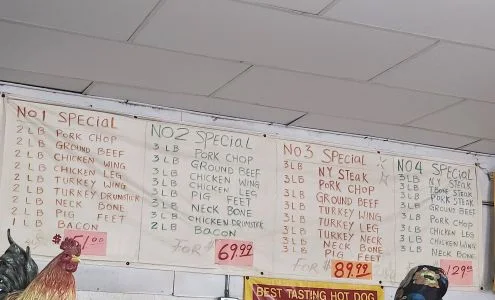 No1 Special
2 LB PORK CHOP
2 LB GROUND BEEF
2 LB CHICKEN WING
2 LB CHICKEN LEG
2 LB TURKEY WING
2 LB TURKEY DRUMSTICK
2 LB NECK BONE
2 LB PIG FEET
1 LB BACON
No2 SPECIAL
3 LB PORK CHOP
3 LB GROUND BEEF
3 LB CHICKEN WING
3 LB CHICKEN LEG
3 LB PIG FEET
3 LB NECK BONE
3 LB CHICKEN DRUMSTICK
2 LB BACON
FOR $ 69.99
No3 Special
3LB NY STEAK
3LB PORK CHOP
3LB GROUND BEEF
3LB TURKEY WING
3LB TURKEY LEG
3LB TURKEY NECK
3LB NECK BONE
FOR $ 89.99
No4 SPECIAL
NY STEAK
TBONE STEAK
PORK STEAK
GROUND BEEF
PORK CHOP
CHICKEN LEG
CHICKEN WING
NECK BONE
129.99
BEST TASTING HOT DOG